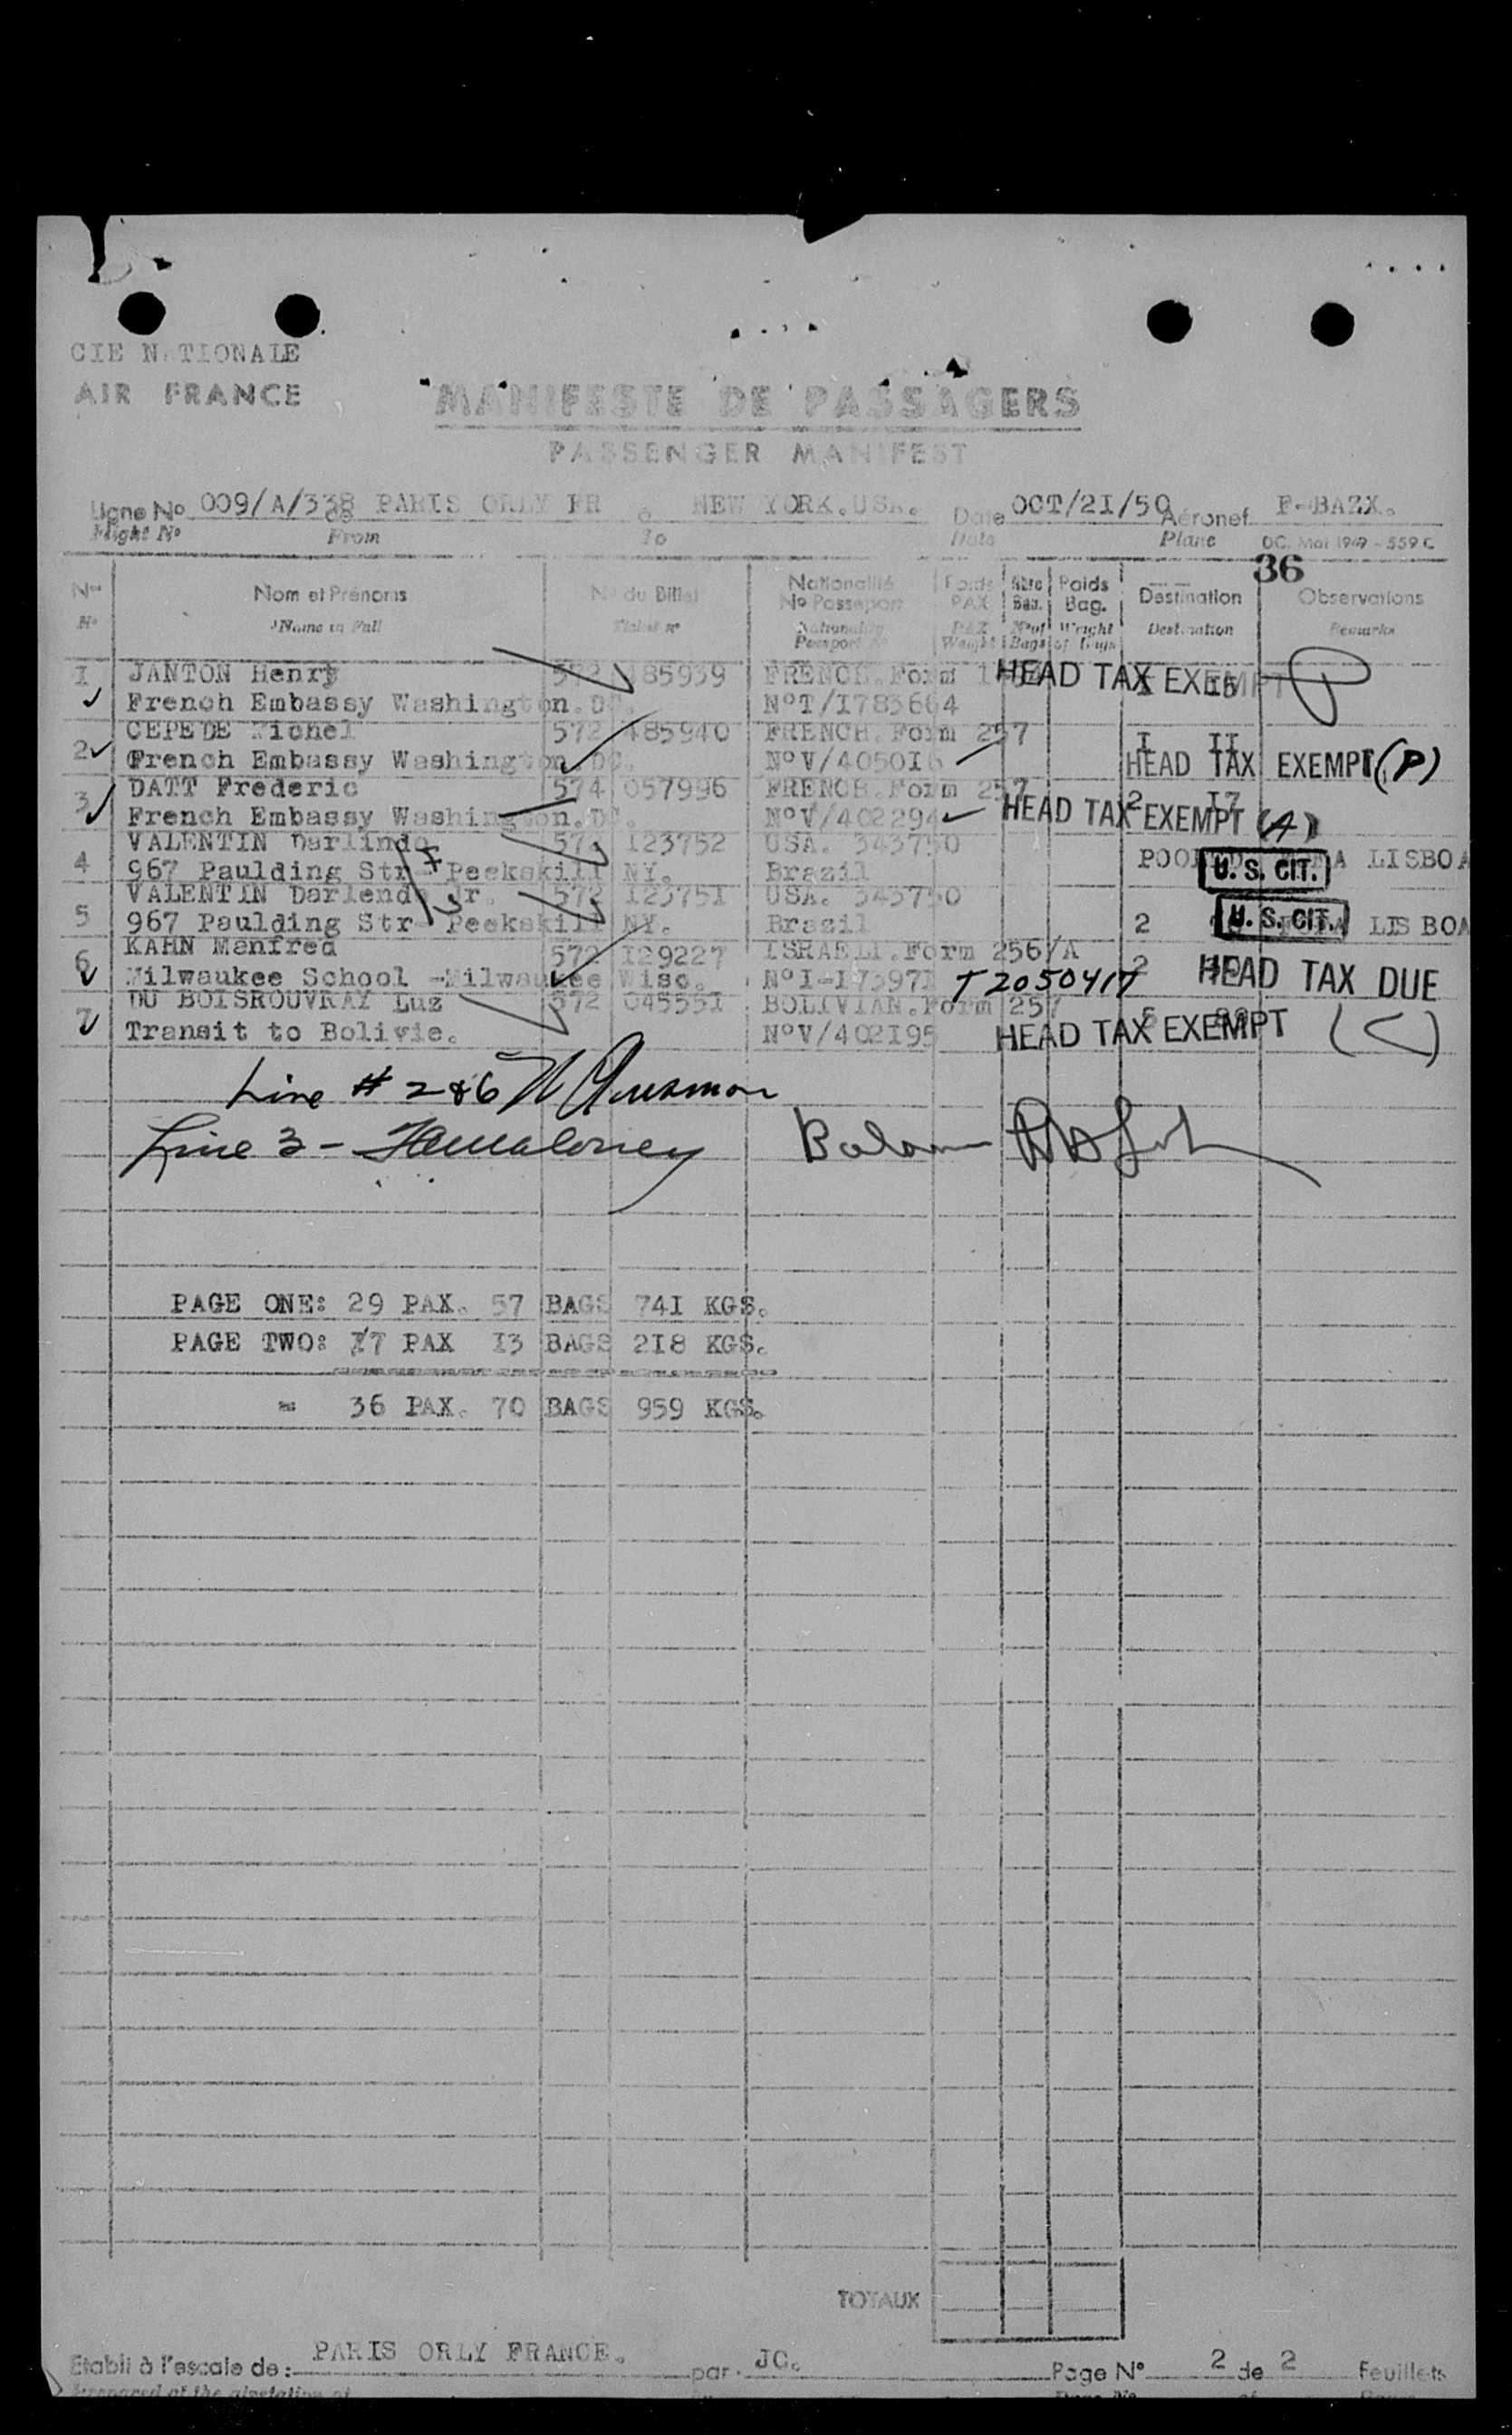 CIE NATIONALE
AIR FRANCE
MANIFESTE DE PASSAGERS
PASSENGER MANIFEST
Ligne No 009/A/338 de PARIS ORLY FR à NEW YORK.USA. Date OCT/21/50 Aéronef F-BAZX.
Flight No From To Date Plane OC. Mai 1949 - 559 C
36
Nos Nom et Prénoms No du Billet Nationalité No Passeport Poids PAX Nbre Bag. Poids Bag. Destination Observations
No Name in Full Ticket no Nationality Passport No PAX Weight No of Bags Weight of bags Destination Remarks
I JANTON Henry 572 185939 FRENCH.Form HEAD TAX EXEMPT P
French Embassy Washington.DC. NoT/I783664
2 CEPEDE Michel 572 185940 FRENCH.Form 257 I II
French Embassy Washington.DC. NoV/40501 HEAD TAX EXEMPT (P)
3 DATT Frederic 574 057996 FRENCH.Form 257 2 I7
French Embassy Washington.DC. NoV/402294 HEAD TAX EXEMPT (A)
4 VALENTIN Darlinda 572 123752 USA. 343750
967 Paulding Str Peekskill NY. Brazil U.S. CIT. LISBOA
5 VALENTIN Darlenda Jr. 572 123751 USA. 343750
967 Paulding Str Peekskill NY. Brazil 2 U.S. CIT. LISBOA
6 KAHN Manfred 572 129227 ISRAELI.Form 256/A
Milwaukee School -Milwaukee Wisc. NoI-I7397I T2050417 2 HEAD TAX DUE
7 DU BOISROUVRAY Luz 572 045551 BOLIVIAN.Form 257
Transit to Bolivie. NoV/402I95 HEAD TAX EXEMPT (C)
Line # 2 & 6
Line 3 -
PAGE ONE: 29 PAX. 57 BAGS 74I KGS.
PAGE TWO: 7 PAX I3 BAGS 2I8 KGS.
= 36 PAX. 70 BAGS 959 KGS.
TOTAUX
Etabli à l'escale de: PARIS ORLY FRANCE. par JC. Page No 2 de 2 Feuillets
Prepared at the station of